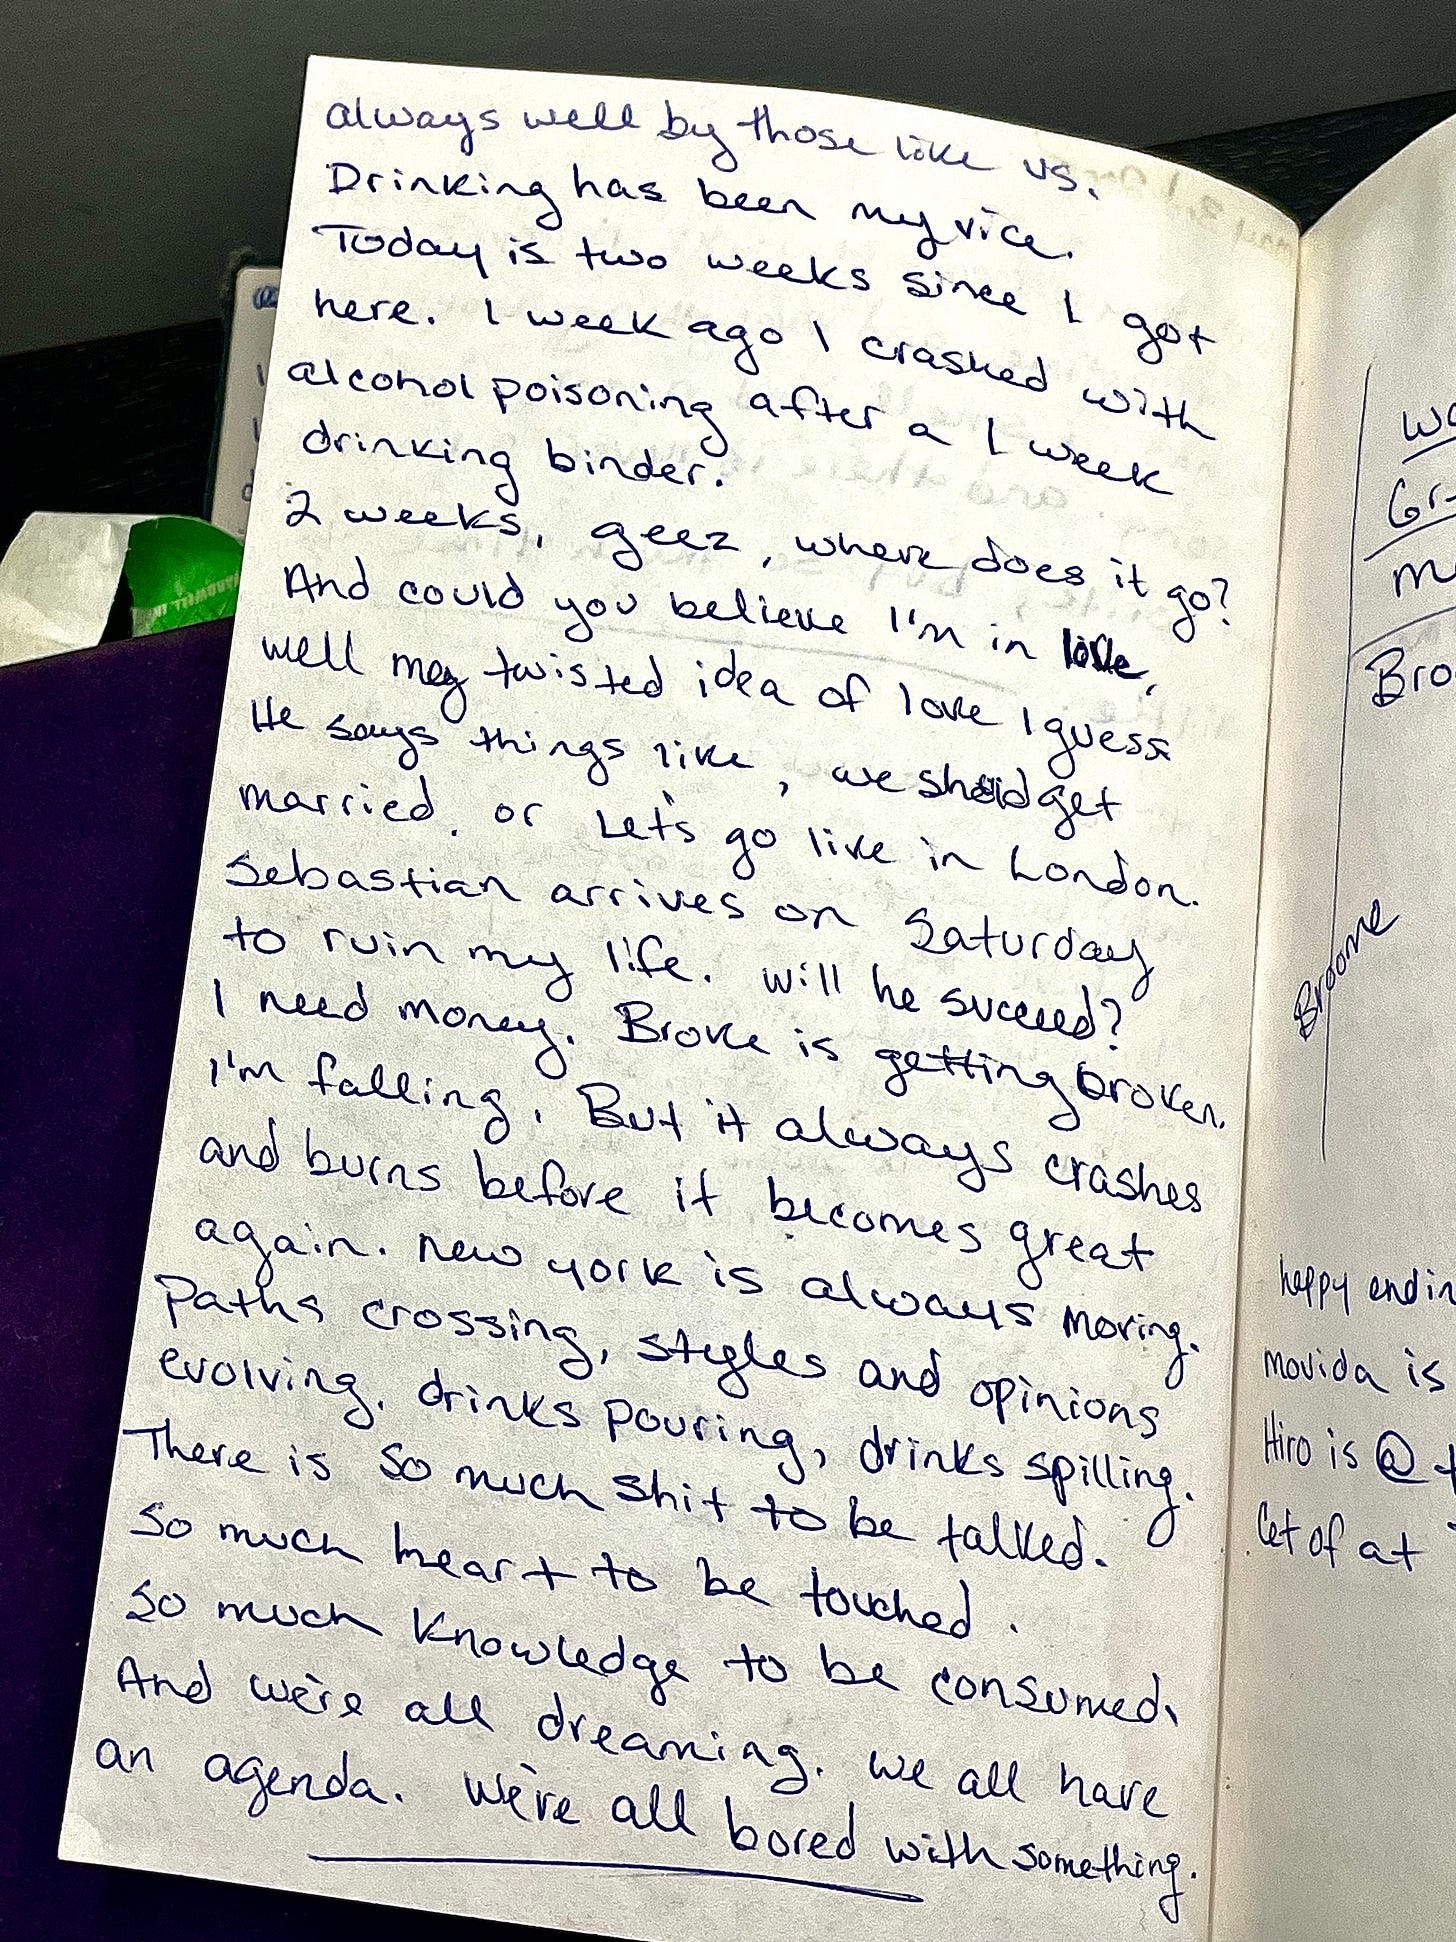 always well by those like us.
Drinking has been my vice.
Today is two weeks since I got
here. 1 week ago I crashed with
alcohol poisoning after a 1 week
drinking binder.
2 weeks, geez, where does it go?
And could you believe I'm in love,
well my twisted idea of love I guess
He says things like, we should get
married. or Let's go live in London.
Sebastian arrives on Saturday
to ruin my life. will he succeed?
I need money. Broke is getting broken.
I'm falling. But it always crashes
and burns before it becomes great
again. New york is always moving.
Paths crossing, styles and opinions
evolving. drinks pouring, drinks spilling.
There is so much shit to be talked.
So much heart to be touched.
So much knowledge to be consumed.
And we're all dreaming. we all have
an agenda. We're all bored with something.
Bro
Broome
happy endin
movida is
Hiro is @
Cet of at